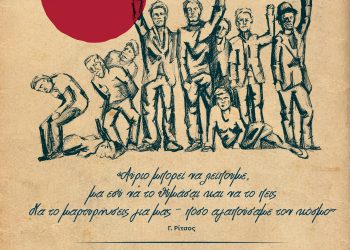 «Αύριο μπορεί να λείπουμε,
μα εσύ να το θυμάσαι και να το πεις
Να το μαρτυρήσεις για μας - πόσο αγαπούσαμε τον κόσμο»
Γ. Ρίτσος